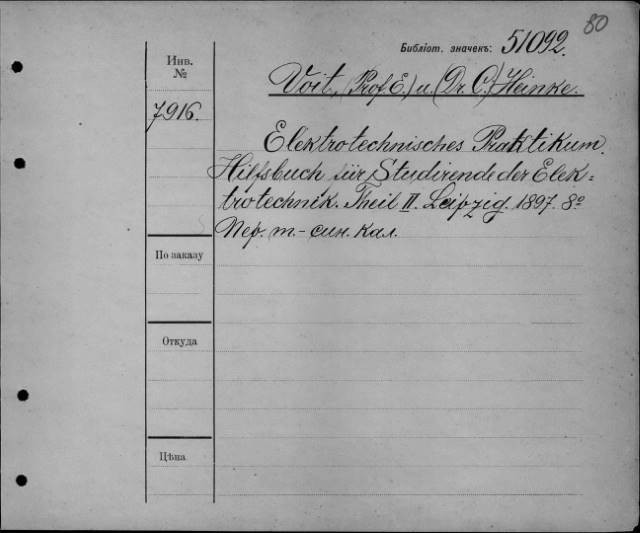 80
Библіот. значекъ: 51092.
Инв.
№
Voit, (Prof. E.) u. (Dr. C.) Heinke.
7916.
Elektrotechnisches Praktikum.
Hilfsbuch für Studirende der Elek=
trotechnik. Theil II. Leipzig. 1897. 8º
Пер. т.-син. кал.
По заказу
Откуда
Цѣна